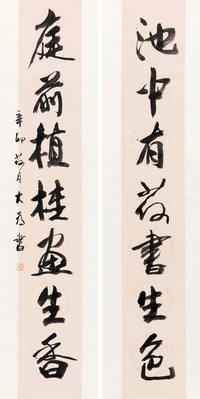 池中有荷書生色
庭前植桂畫生香
辛卯荷月大為書